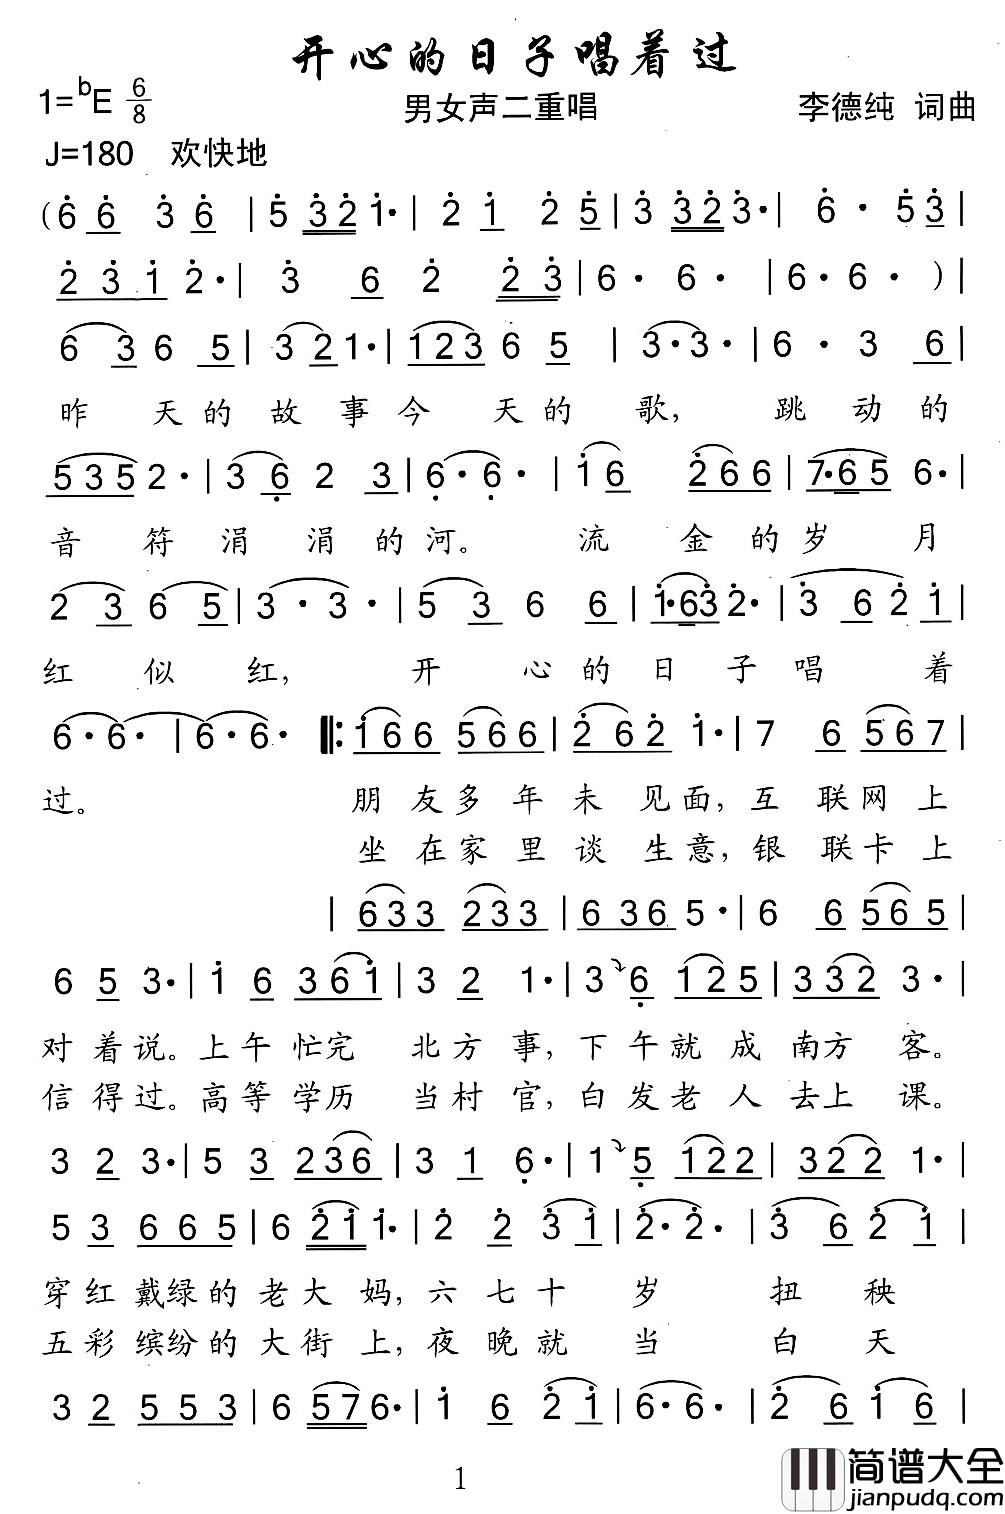 开心的日子唱着过
1=ᵇE 6/8 男女声二重唱 李德纯 词曲
J=180 欢快地
(6̇ 6̇ 3̇ 6̇ | 5̇ 3̇2̇ 1̇· | 2̇ 1̇ 2̇ 5̇ | 3̇ 3̇2̇3̇· | 6̇ · 5̇3̇ |
2̇ 3̇ 1̇ 2̇· | 3̇ 6 2̇ 2̇3̇ | 6· 6· | 6·6· ) |
6 3 6 5 | 3 2 1· | 1 2 3 6 5 | 3·3· | 6 · 3 6 |
昨天的故事今天的歌，跳动的
5 3 5 2· | 3 6̣ 2 3 | 6̣·6̣· | 1̇ 6 2̇ 6 6 | 7·6 5 6· |
音符涓涓的河。流金的岁月
2 3 6 5 | 3 · 3· | 5 3 6 6 | 1̇·6 3̇ 2̇· | 3̇ 6 2̇ 1̇ |
红似红，开心的日子唱着
6·6· | 6·6· ‖: 1̇ 6 6 5 6 6 | 2̇ 6 2̇ 1̇· | 7 6 5 6 7 |
过。朋友多年未见面，互联网上
坐在家里谈生意，银联卡上
| 6 3 3 2 3 3 | 6 3 6 5· | 6 6 5 6 5 |
6 5 3· | 1̇ 6 3 6 1̇ | 3 2 1· | 3 6̣ 1 2 5 | 3 3 2 3· |
对着说。上午忙完北方事，下午就成南方客。
信得过。高等学历当村官，白发老人去上课。
3 2 3· | 5 3 2 3 6 | 3 1 6̣· | 1 5̣ 1 2 2 | 3 2 2 1· |
5 3 6 6 5 | 6 2̇1̇ 1̇· | 2̇ 2̇ 3̇ 1̇ | 2̇·2̇· | 3̇ 6 2̇ 1̇ |
穿红戴绿的老大妈，六七十岁扭秧
五彩缤纷的大街上，夜晚就当白天
3 2 5 5 3 | 6 5 7 6· | 1̇ 6 2̇ 1̇ | 6·6· | 2̇ 6 1̇ 6 |
1
简谱大全
jianpudq.com